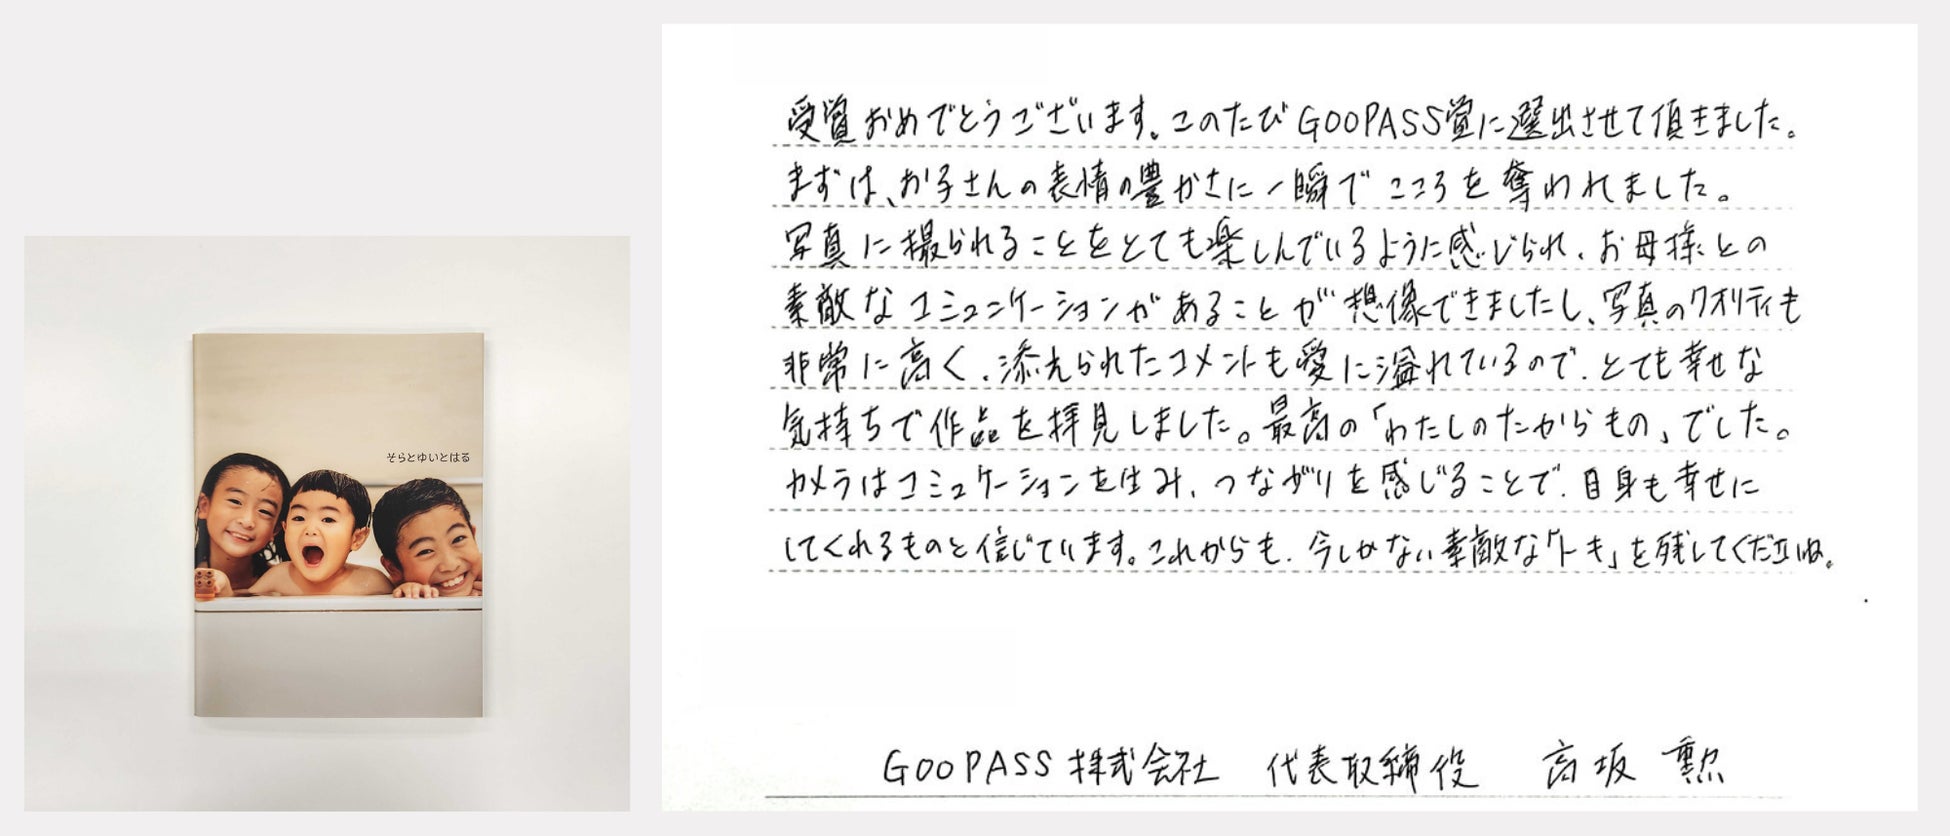 そらとゆいとはる
受賞おめでとうございます。このたびGOOPASS賞に選出させて頂きました。
まずは、お子さんの表情の豊かさに一瞬でこころを奪われました。
写真に撮られることをとても楽しんでいるように感じられ、お母様との
素敵なコミュニケーションがあることが想像できましたし、写真のクオリティも
非常に高く、添えられたコメントも愛に溢れているので、とても幸せな
気持ちで作品を拝見しました。最高の「わたしのたからもの」でした。
カメラはコミュケーションを生み、つながりを感じることで、自身も幸せに
してくれるものと信じています。これからも、今しかない素敵な「トキ」を残してくださいね。
GOOPASS株式会社 代表取締役 高坂 勲